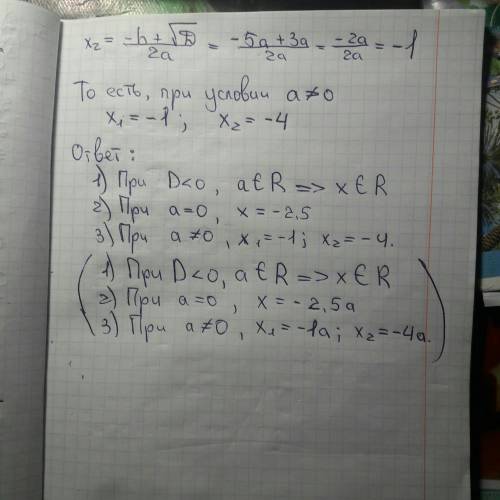 x₂ = (-b + √D)/2a = (-5a + 3a)/2a = -2a/2a = -1
То есть, при условии a≠0
x₁ = -1; x₂ = -4
Ответ:
1) При D<0, a∈R => x∈R
2) При a=0, x = -2,5
3) При a≠0, x₁=-1; x₂=-4.
(1) При D<0, a∈R => x∈R
2) При a=0, x = -2,5a
3) При a≠0, x₁=-1a; x₂=-4a.)